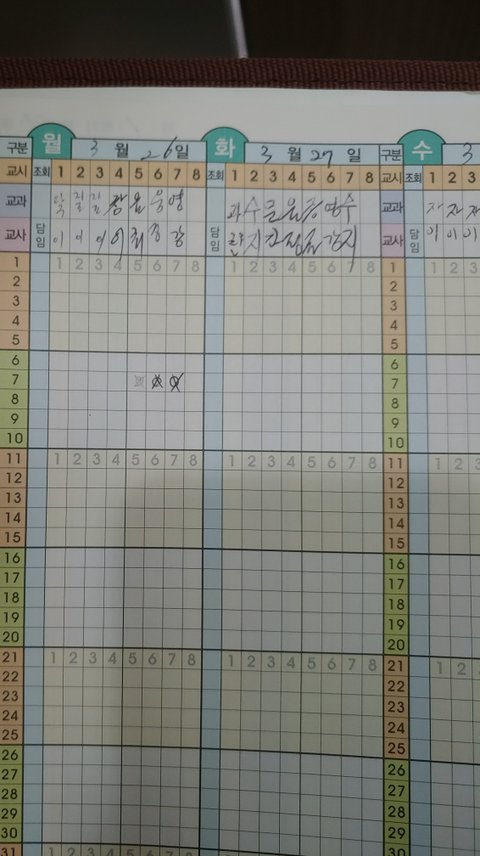 월 화 수
구분 3 월 26일 3 월 27 일 구분 3
교시 조회 1 2 3 4 5 6 7 8 조회 1 2 3 4 5 6 7 8 교시 조회 1 2 3
교과 영 과 수 수 교과
교사 담임 이 이 이 이 최 강 담임 지 강 지 교사 담임 이 이 이
1 1 2 3 4 5 6 7 8 1 2 3 4 5 6 7 8 1 1 2 3
2 2
3 3
4 4
5 5
6 6
7 7
8 8
9 9
10 10
11 1 2 3 4 5 6 7 8 1 2 3 4 5 6 7 8 11 1 2 3
12 12
13 13
14 14
15 15
16 16
17 17
18 18
19 19
20 20
21 1 2 3 4 5 6 7 8 1 2 3 4 5 6 7 8 21 1 2
22 22
23 23
24 24
25 25
26 26
27 27
28 28
29 29
30 30
31